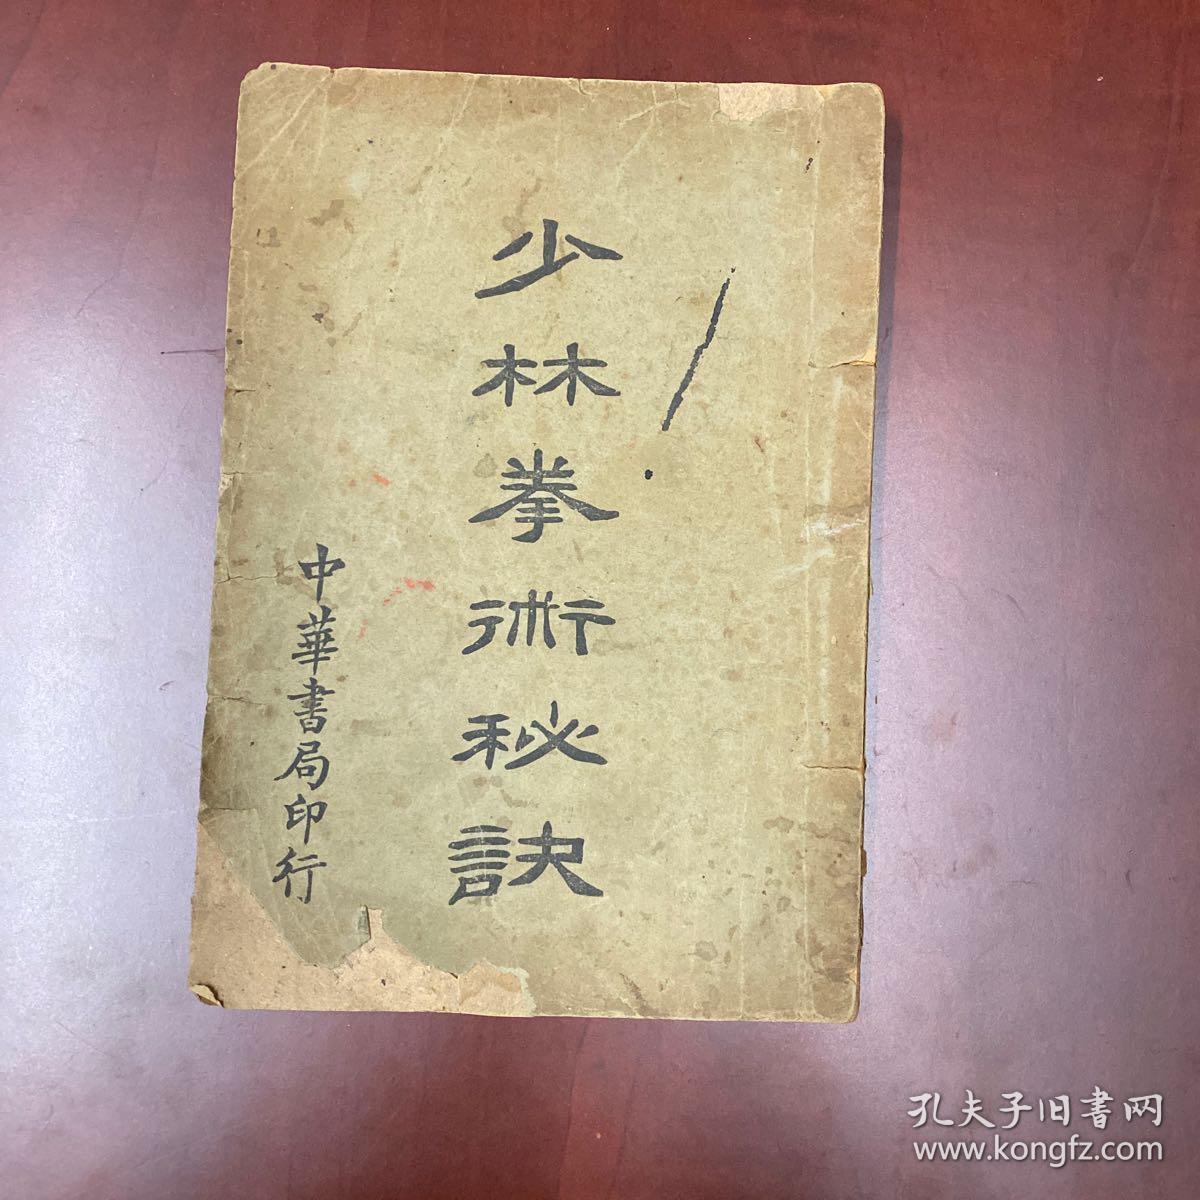 少林拳術秘訣
中華書局印行
孔夫子旧書网
www.kongfz.com